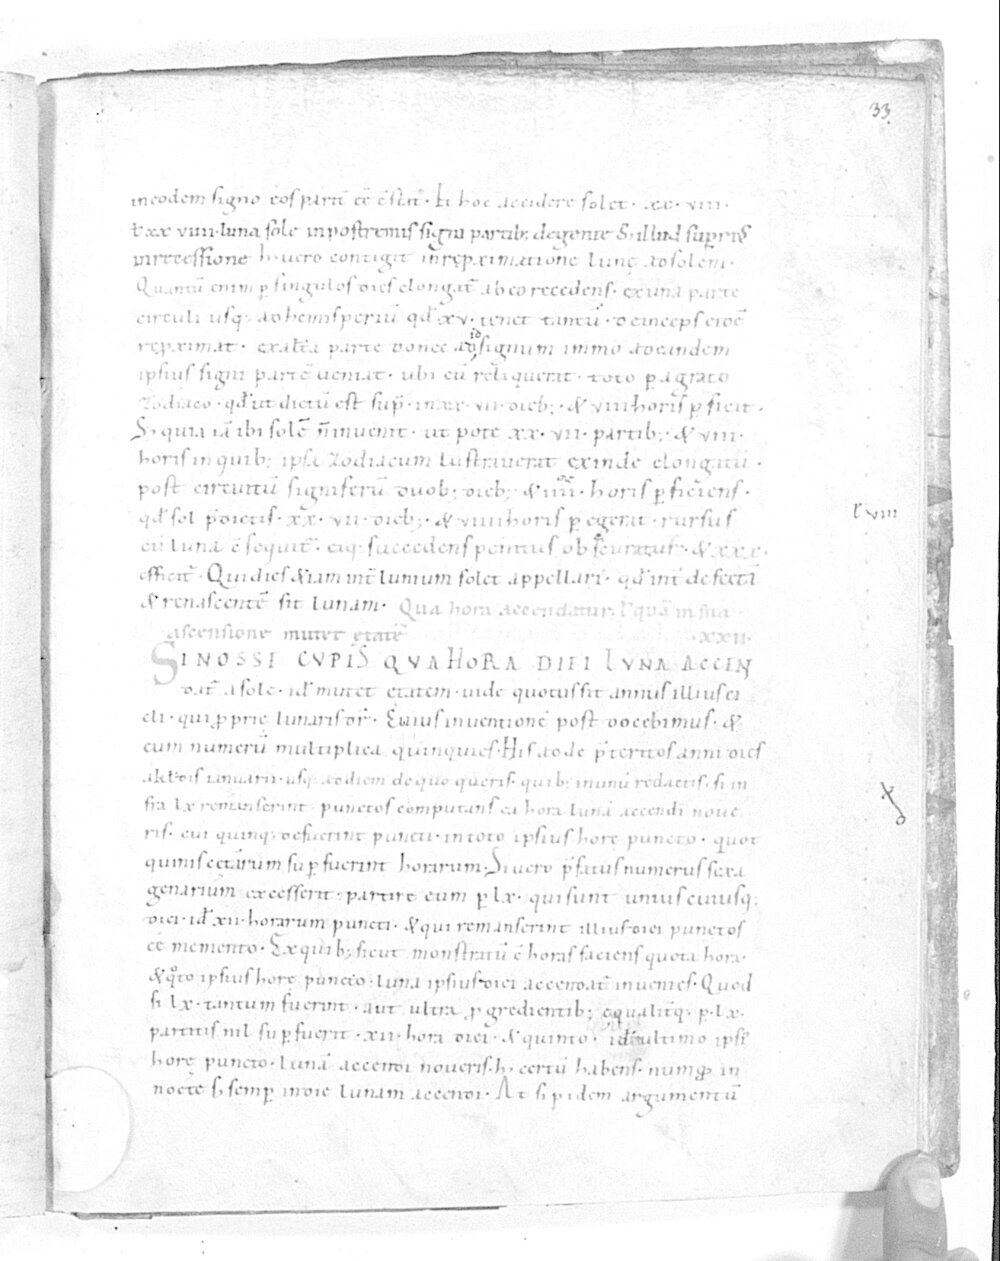 33
in eodem signo eos partē cē cēsent. Et hoc accidere solet. xx. viii.
t xx viiii luna sole in postremis signi partib; degente S; illud suprēs
in recessione h uero contigit in reproximatione lunę ad solem.
Quantū enim p singulos dies elongat̄ ab eo recedens. ex una parte
circuli usq; ad hemisperiū qd̄ xv. tenet tantū. deinceps eidē
rep̄ximat. ex alt̄a parte donec ad id signum immo ad eandem
ipsius signi partē ueniat. ubi eū reliquerat. toto p agrato
Zodiaco. qd̄ ut dictū est sup̄. in xx. vii. dieb; & viii horis p ficit.
Si quia iā ibi solē n̄ inuenit. ut pote xx. vii. partib; & viii.
horis in quib; ipsa Zodiacum lustrauerat exinde elongatū.
post circuitū signiferū duob; dieb; & iiii. horis p ficiens.
qd̄ sol p̄dictis. xx. vii. dieb; & viii horis p egerat. rursus
eū luna c̄sequit̄. eiq; succedens penitus obscuratur. & xxx.
efficit̄. Qui dies & iam int̄ lunium solet appellari. qd̄ int̄ defectā
l viii
& renascentē sit lunam. Qua hora accendatur. l quā in sua
ascensione mutet etatē xxii.
SI NOSSE CVPIS QVA HORA DIEI LVNA ACCEN
dat̄ a sole. id mutet etatem. uide quotus sit annus illius ci
cli. qui p̄prie lunaris dr̄. Cuius inuentionē post docebimus. &
eum numerū multiplica quinquies. His adde p̄teritos anni dies
a kl̄dis ianuarii. usq; ad diem de quo queris. quib; in unū redactis. si in
fra lx remanserint. punctos computans ea hora lunā accendi noue
ris. cui quinq; defuerint puncti. in toto ipsius horę puncto. quot
quinis etiarum sup fuerint horarum. Si uero p̄fatus numerus sexa
genarium excesserit. partire eum p lx. qui sunt unius cuiusq;
diei. id xii. horarum puncti. & qui remanserint illius diei punctos
cē memento. Ex quib; sicut monstratū ē horas faciens quota hora.
& q̊to ipsius horę puncto. luna ipsius diei accendat̄ inuenies. Quod
si lx. tantum fuerint. aut ultra p gredientib; equalit̄q; p. lx.
partitis nil sup fuerit. xii. hora diei. & quinto. id ultimo ipsi
horę puncto. lunā accendi noueris. h. certū habens. numq̄ in
nocte s; semp in die lunam accendi. At s; p idem argumentū